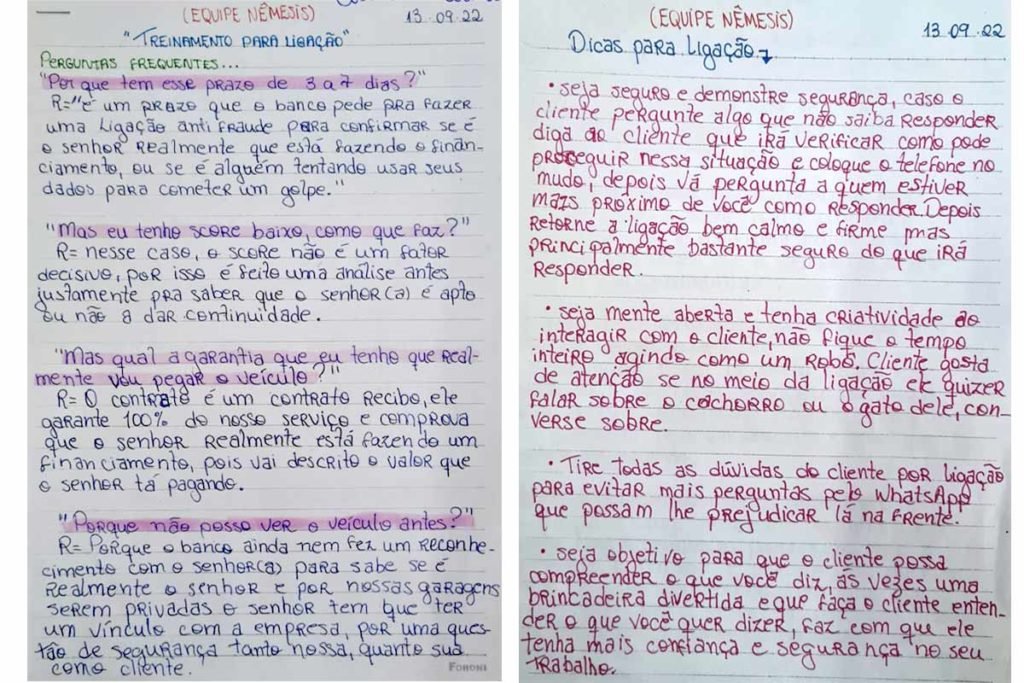 (EQUIPE NÊMESIS)
13.09.22
"TREINAMENTO PARA LIGAÇÃO"
PERGUNTAS FREQUENTES...
"Por que tem esse prazo de 3 a 7 dias?"
R="é um prazo que o banco pede pra fazer
uma ligação anti fraude para confirmar se é
o senhor realmente que está fazendo o finan-
ciamento, ou se é alguém tentando usar seus
dados para cometer um golpe."
"Mas eu tenho score baixo, como que faz?"
R= nesse caso, o score não é um fator
decisivo, por isso é feito uma análise antes
justamente pra saber que o senhor(a) é apto
ou não a dar continuidade.
"Mas qual a garantia que eu tenho que real-
mente vou pegar o veículo?"
R= O contrato é um contrato recibo, ele
garante 100% do nosso serviço e comprova
que o senhor realmente está fazendo um
financiamento, pois vai descrito o valor que
o senhor tá pagando.
"Porque não posso ver o veículo antes?"
R= Porque o banco ainda nem fez um reconhe-
cimento com o senhor(a) para sabe se é
realmente o senhor e por nossas garagens
serem privadas o senhor tem que ter
um vínculo com a empresa, por uma ques-
tão de segurança tanto nossa, quanto sua
como cliente.
FORONI
(EQUIPE NÊMESIS)
13.09.22
Dicas para Ligação
• seja seguro e demonstre segurança, caso o
cliente pergunte algo que não saiba responder
diga ao cliente que irá verificar como pode
prosseguir nessa situação e coloque o telefone no
mudo, depois vá pergunta a quem estiver
mais próximo de você como responder. Depois
retorne a ligação bem calmo e firme mas
principalmente bastante seguro do que irá
responder.
• seja mente aberta e tenha criatividade ao
interagir com o cliente, não fique o tempo
inteiro agindo como um robô. Cliente gosta
de atenção se no meio da ligação ele quizer
falar sobre o cachorro ou o gato dele, con-
verse sobre.
• Tire todas as dúvidas do cliente por ligação
para evitar mais perguntas pelo WhatsApp
que possam lhe prejudicar lá na frente.
• seja objetivo para que o cliente possa
compreender o que você diz, ás vezes uma
brincadeira divertida e que faça o cliente enten-
der o que você quer dizer, faz com que ele
tenha mais confiança e segurança no seu
trabalho.